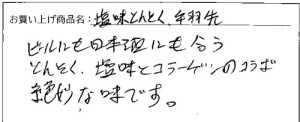 お買い上げ商品名：塩味とんとく、手羽先
ビールにも日本酒にも合う
とんとく、塩味とコラーゲンのコラボ
絶妙な味です。